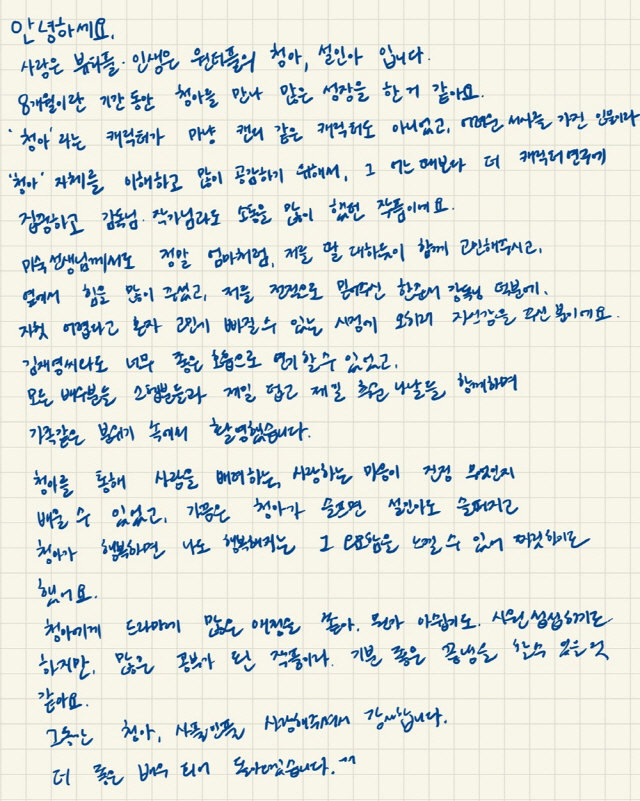 안녕하세요.
사랑은 뷰티풀·인생은 원더풀의 청아, 설인아 입니다.
8개월이란 기간동안 청아를 만나 많은 성장을 한 거 같아요.
'청아'라는 캐릭터가 마냥 캔디 같은 캐릭터도 아니었고, 어려운 서사를 가진 인물이라
'청아' 자체를 이해하고 많이 공감하기 위해서, 그 어느때보다 더 캐릭터연구에
집중하고 감독님·작가님과도 소통을 많이 했던 작품이에요.
미숙선생님께서도 정말 엄마처럼, 저를 딸 대하듯이 함께 고민해주시고,
옆에서 힘을 많이 주셨고, 저를 전적으로 믿어주신 한준서 감독님 덕분에,
자칫 어렵다고 혼자 고민에 빠질 수 있는 시점에 오히려 자신감을 주신 분이에요.
김재영씨와도 너무 좋은 호흡으로 연기할 수 있었고,
모든 배우분들 스탭분들과 제일 덥고 제일 추운 나날들 함께하며
가족같은 분위기 속에서 촬영했습니다.
청아를 통해 사람을 배려하는, 사랑하는 마음이 진정 무엇인지
배울 수 있었고, 가끔은 청아가 슬프면 설인아도 슬퍼지고
청아가 행복하면 나도 행복해지는 그 묘함을 느낄 수 있어 따뜻하기도
했어요.
청아에게 드라마에 많은 애정을 쏟아, 뭔가 아쉽기도. 시원섭섭하기도
하지만, 많은 공부가 된 작품이라. 기분 좋은 끝냄을 할 수 있을 것
같아요.
그동안 청아, 사풀인풀 사랑해주셔서 감사합니다.
더 좋은 배우 되어 돌아오겠습니다.^^